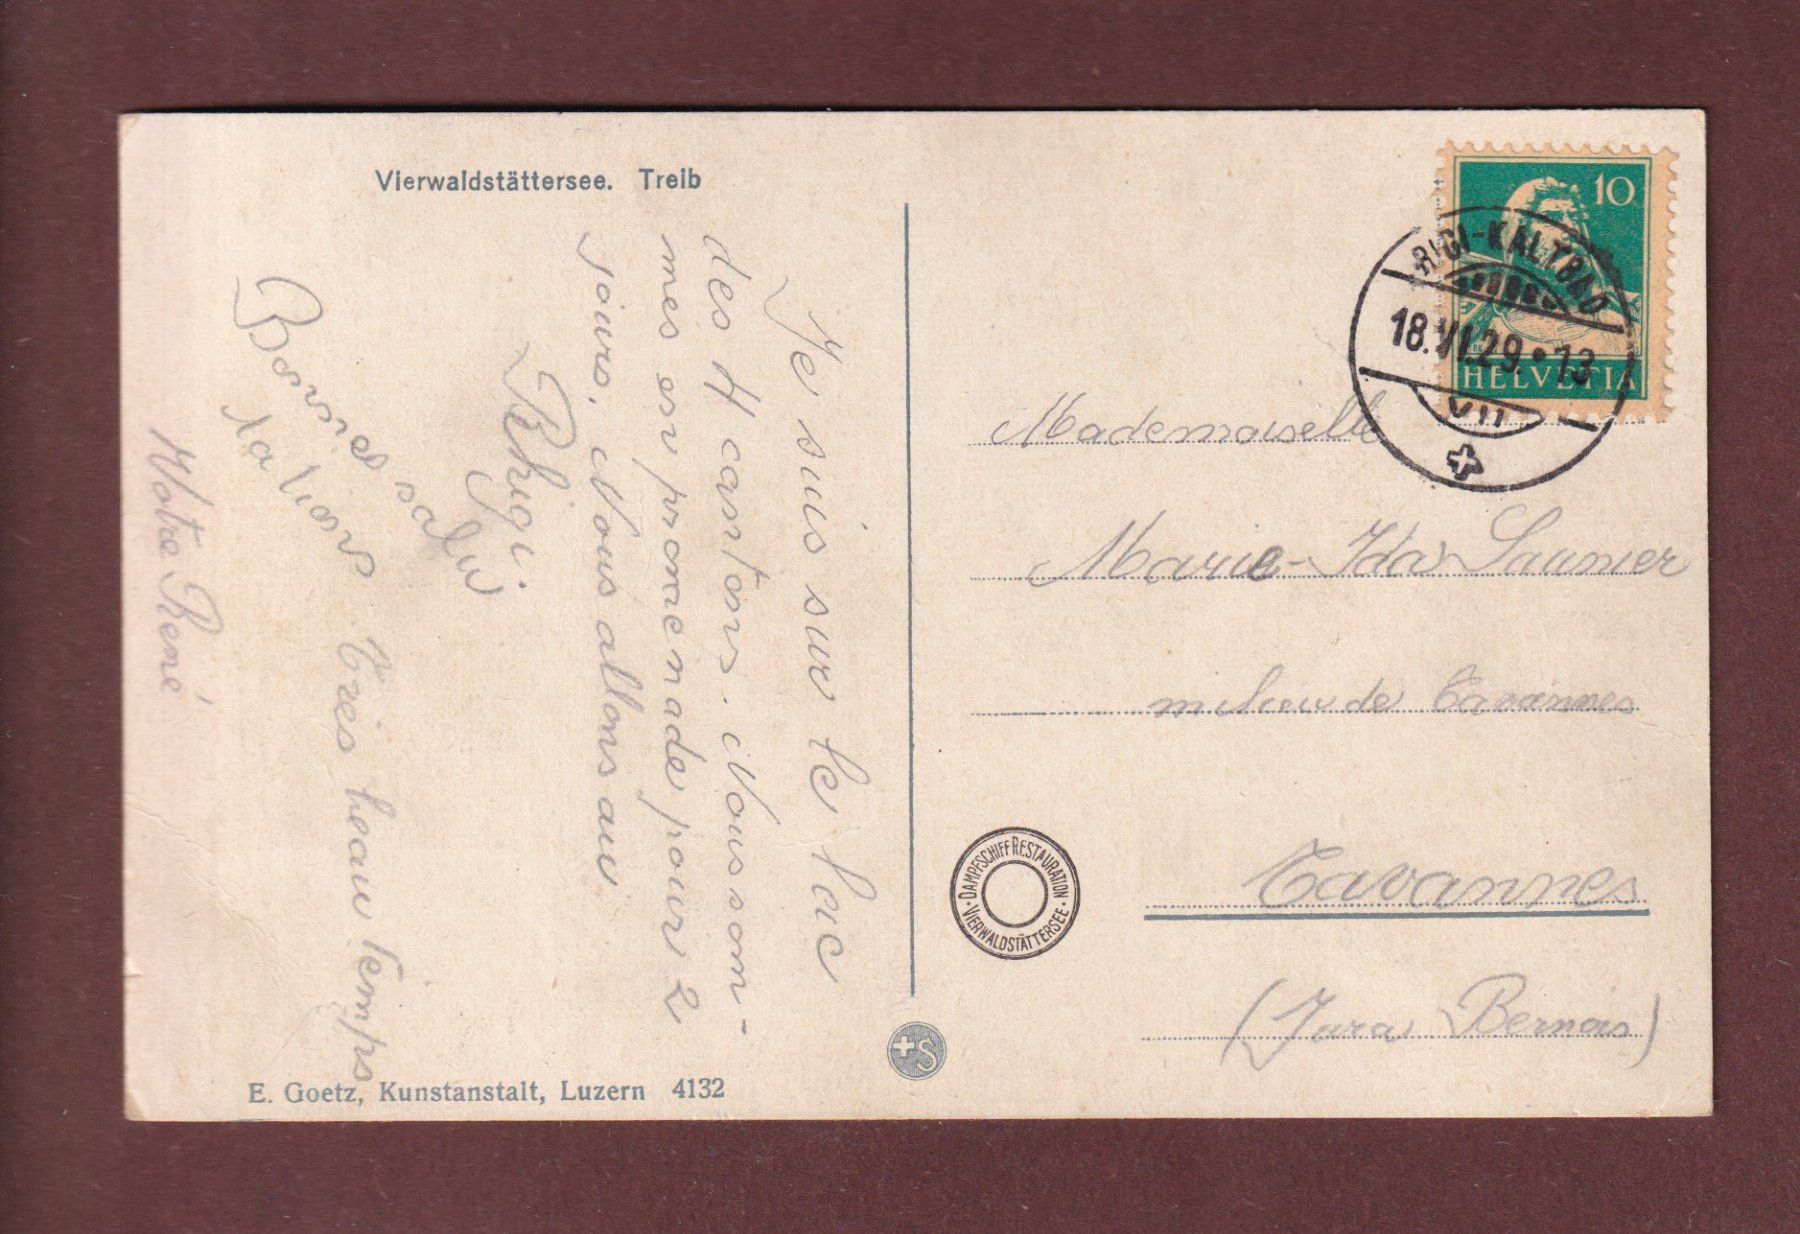 Vierwaldstättersee. Treib
Je suis sur le lac
des 4 cantons. Nous som-
mes en promenade pour 2
jours. Nous allons au
Rhigi.
Bonnes salu
tations. Très beau temps
Votre René
E. Goetz, Kunstanstalt, Luzern 4132
+S
10
HELVETIA
RIGI-KALTBAD
18.VI.29.•13
VII
Mademoiselle
Marie-Ida Saunier
milieu de Tavannes
Tavannes
(Jura Bernois)
DAMPFSCHIFF RESTAURATION
• VIERWALDSTÄTTERSEE •